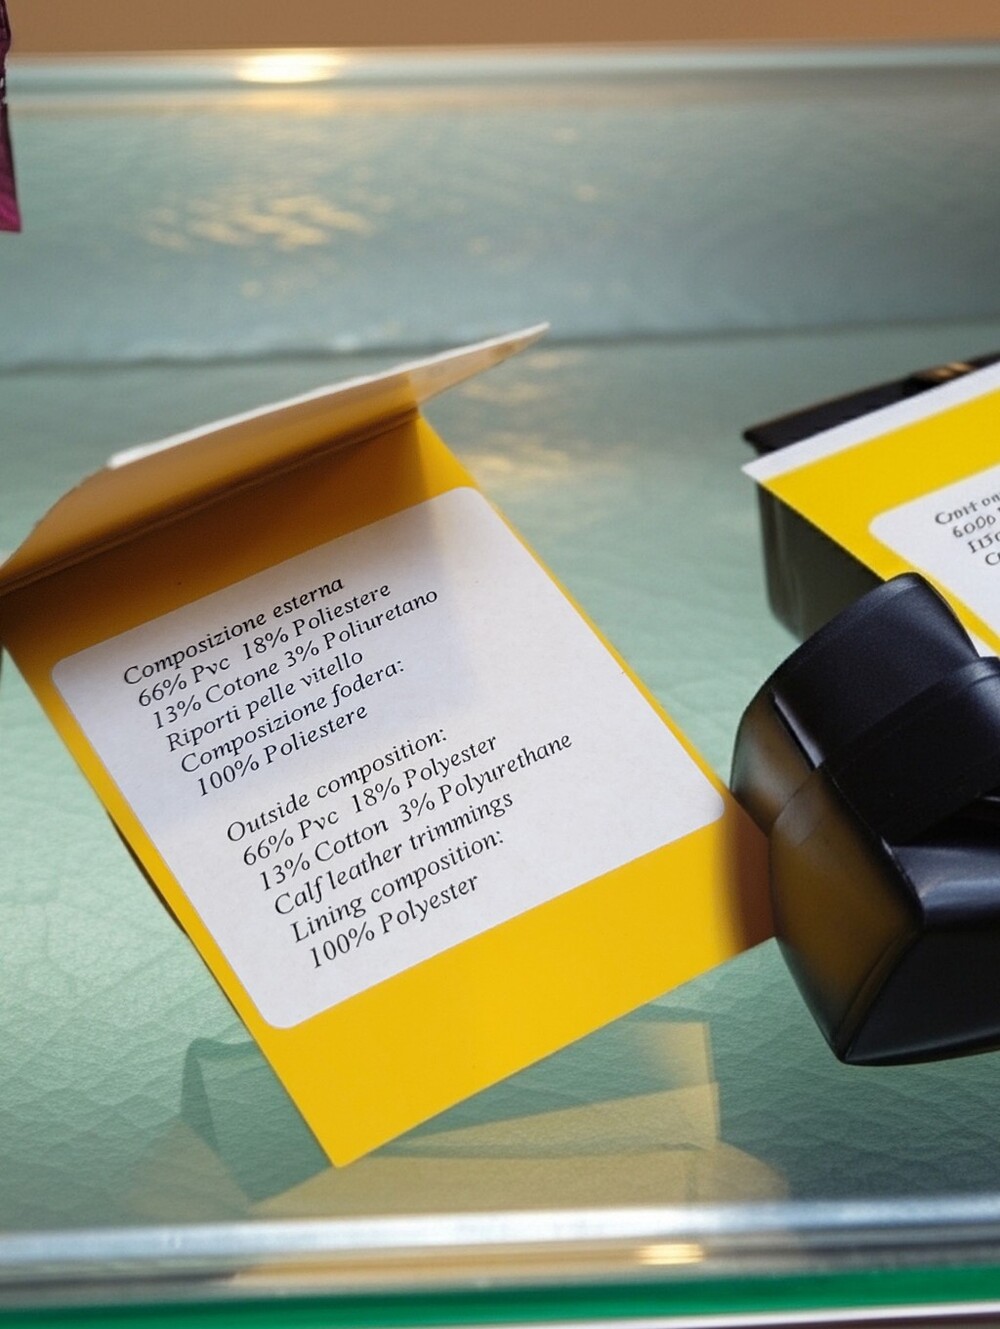 Composizione esterna
66% Pvc 18% Poliestere
13% Cotone 3% Poliuretano
Riporti pelle vitello
Composizione fodera:
100% Poliestere
Outside composition:
66% Pvc 18% Polyester
13% Cotton 3% Polyurethane
Calf leather trimmings
Lining composition:
100% Polyester